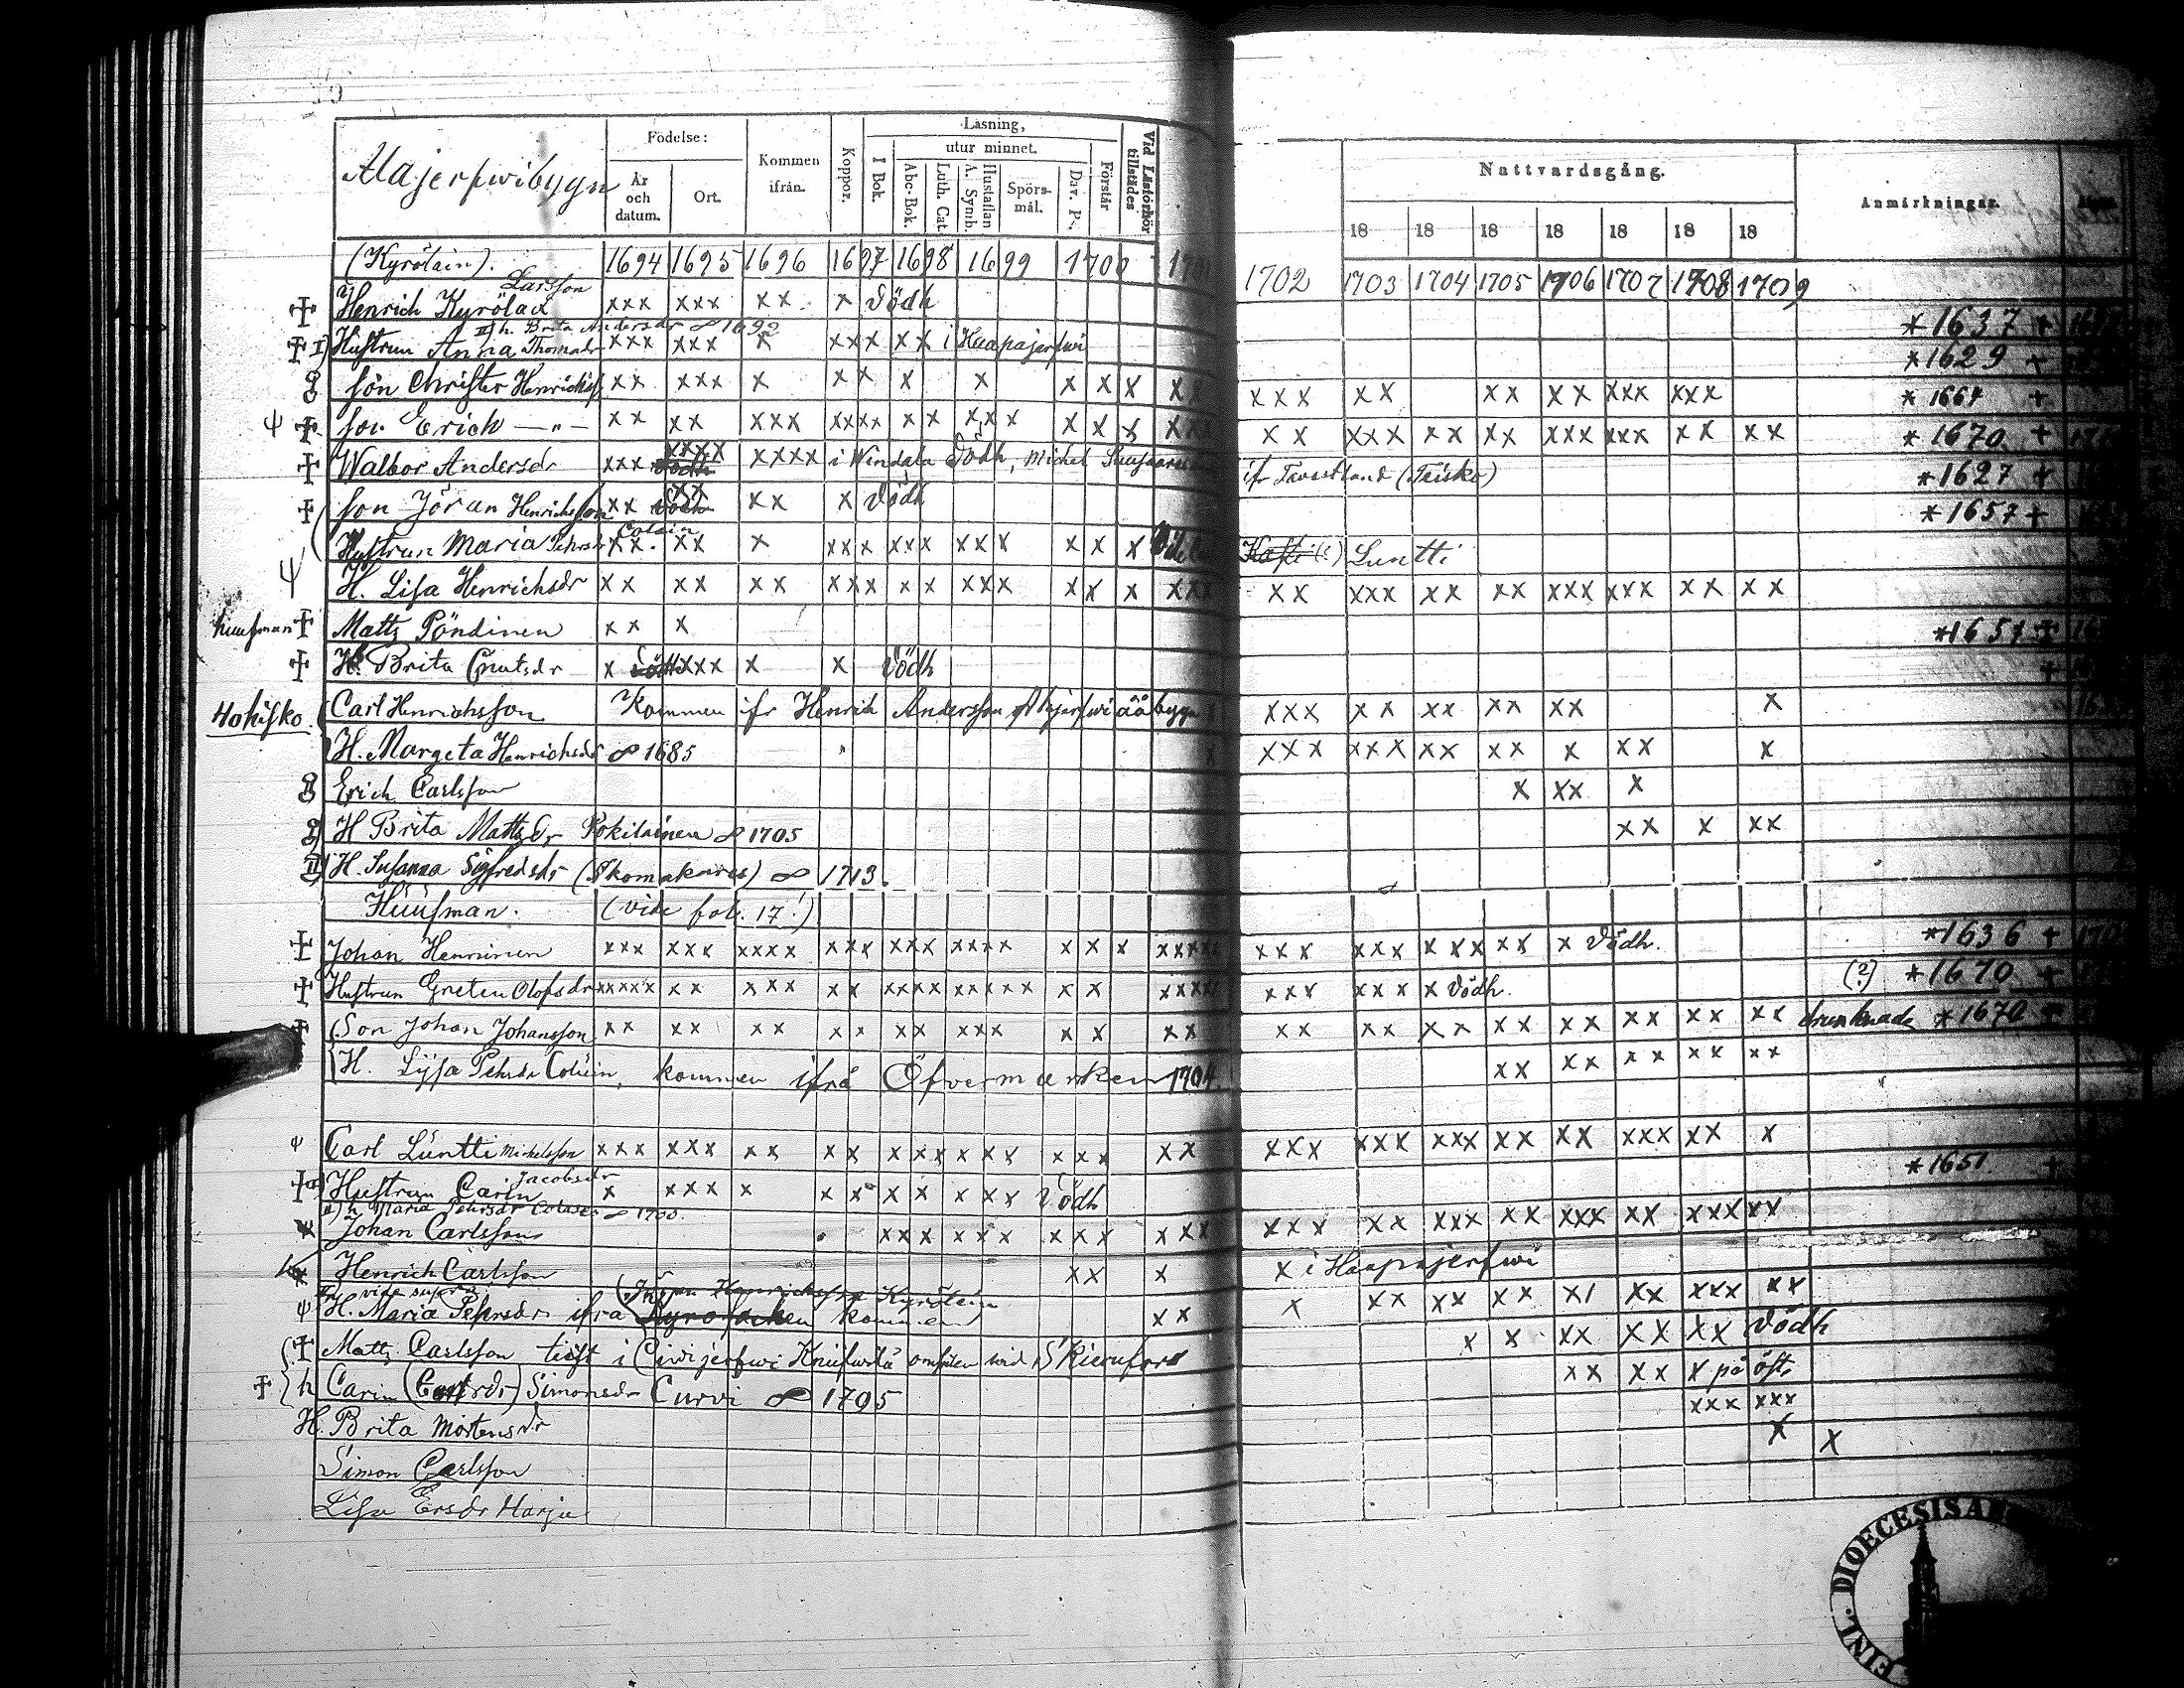 Alajerfwibygn
Födelse:
År och datum.
Ort.
Kommen ifrån.
Koppor.
Läsning,
utur minnet.
I Bok.
Abc-Bok.
Luth. Cat.
Hustaflan A. Symb.
Spörs-mål.
Dav. Ps.
Förstår
Vid Läsförhör tillstädes
Nattvardsgång.
Anmärkningar.
18 18 18 18 18 18 18
(Kyröläin). 1694 1695 1696 1697 1698 1699 1700 1702 1703 1704 1705 1706 1707 1708 1709
Larsson
Henrich Kyröläx xxx xxx xx x Dödh *1637 +
II) h. Brita Andersdr ∞ 1692
I) Hustrun Anna Thomasdr xxx xxx x xxx xx i Haapajerfwi *1629 +
son Christer Henrichss xx xxx x xx x x x x x xx xxx xx xx xx xxx xxx * 1664 +
son Erich —"— xx xx xxx xxxx xx xxx x x x xxx xx xxx xx xx xxx xxx xx xx * 1670 +
Walbor Andersdr xxx Dödh xxxx xxxx i Windala Dödh, Michel ifr Tavastland (Teisko) *1627 +
son Jöran Henrichsson xx Dödh xx xx x Dödh *1657 +
Hustrun Maria Pehrsdr Colain xx xx x xxx xxx xxx x x x Luntti
H. Lisa Henrichsdr xx xx xx xxx xx xxx xx x xxx xx xxx xx xx xxx xxx xx xx
huusman Matts Pöndinen xx x *1651 +
H. Brita Cnutsdr x Dödh xxx x x Dödh +
Hohisko. Carl Henrichsson Kommen ifr Henrik Andersson Alajerfwi ååbygn xxx xx xx xx xx x
H. Margeta Henrichsdr ∞ 1685 xxx xxx xx xx x xx x
Erich Carlsson x xx x
H Brita Mattsdr Pokilainen ∞ 1705 xx x xx
II) H. Susanna Sigfredsdr (Skomakares) ∞ 1713.
Huusman. (vide fol. 17!)
Johan Henninen xxx xxx xxxx xxx xxx xxxx x x x xxxxx xxx xxx xxx xx x Dödh. *1636 +
Hustrun Greten Olofsdr xxxxx xx xxx xx xxxx xxxxx x x xxxx xxx xxx x Dödh. (?) *1670 +
Son Johan Johansson xx xx xx xx xx xxx x x xx xx xx xx xx xx xx xx xx drunknade *1670 +
H. Lysa Pehrsdr Coluin, kommen ifrå Öfvermarken 1704. xx xx xx xx xx
Carl Luntti Michelsson xxx xxx xx xx xxx xxx xxx xx xxx xxx xxx xx xx xxx xx x
Hustrun Carin Jacobsdr x xxx x xx xx xxx Dödh *1651 +
II) h. Maria Pehrsdr ∞ 1700.
Johan Carlsson xxx xxx xxx xxx xxx xx xxx xx xxx xx xxx xx
Henrich Carlsson xx x x i Haapajerfwi
vide supra (Jöran Henrichsson Kyröläin
H. Maria Pehrsdr ifrå kommen) xx x xx xx xx x1 xx xxx xx
Matts Carlsson tiest i Ciwijerfwi x x xx xx xx Dödh
h Carin Simonsdr Curvi ∞ 1705 xx xx x på öst.
H. Brita Mårtensdr xxx xxx
Simon Carlsson x x
Lisa Ersdr Harju
FINL. DIOECESIS